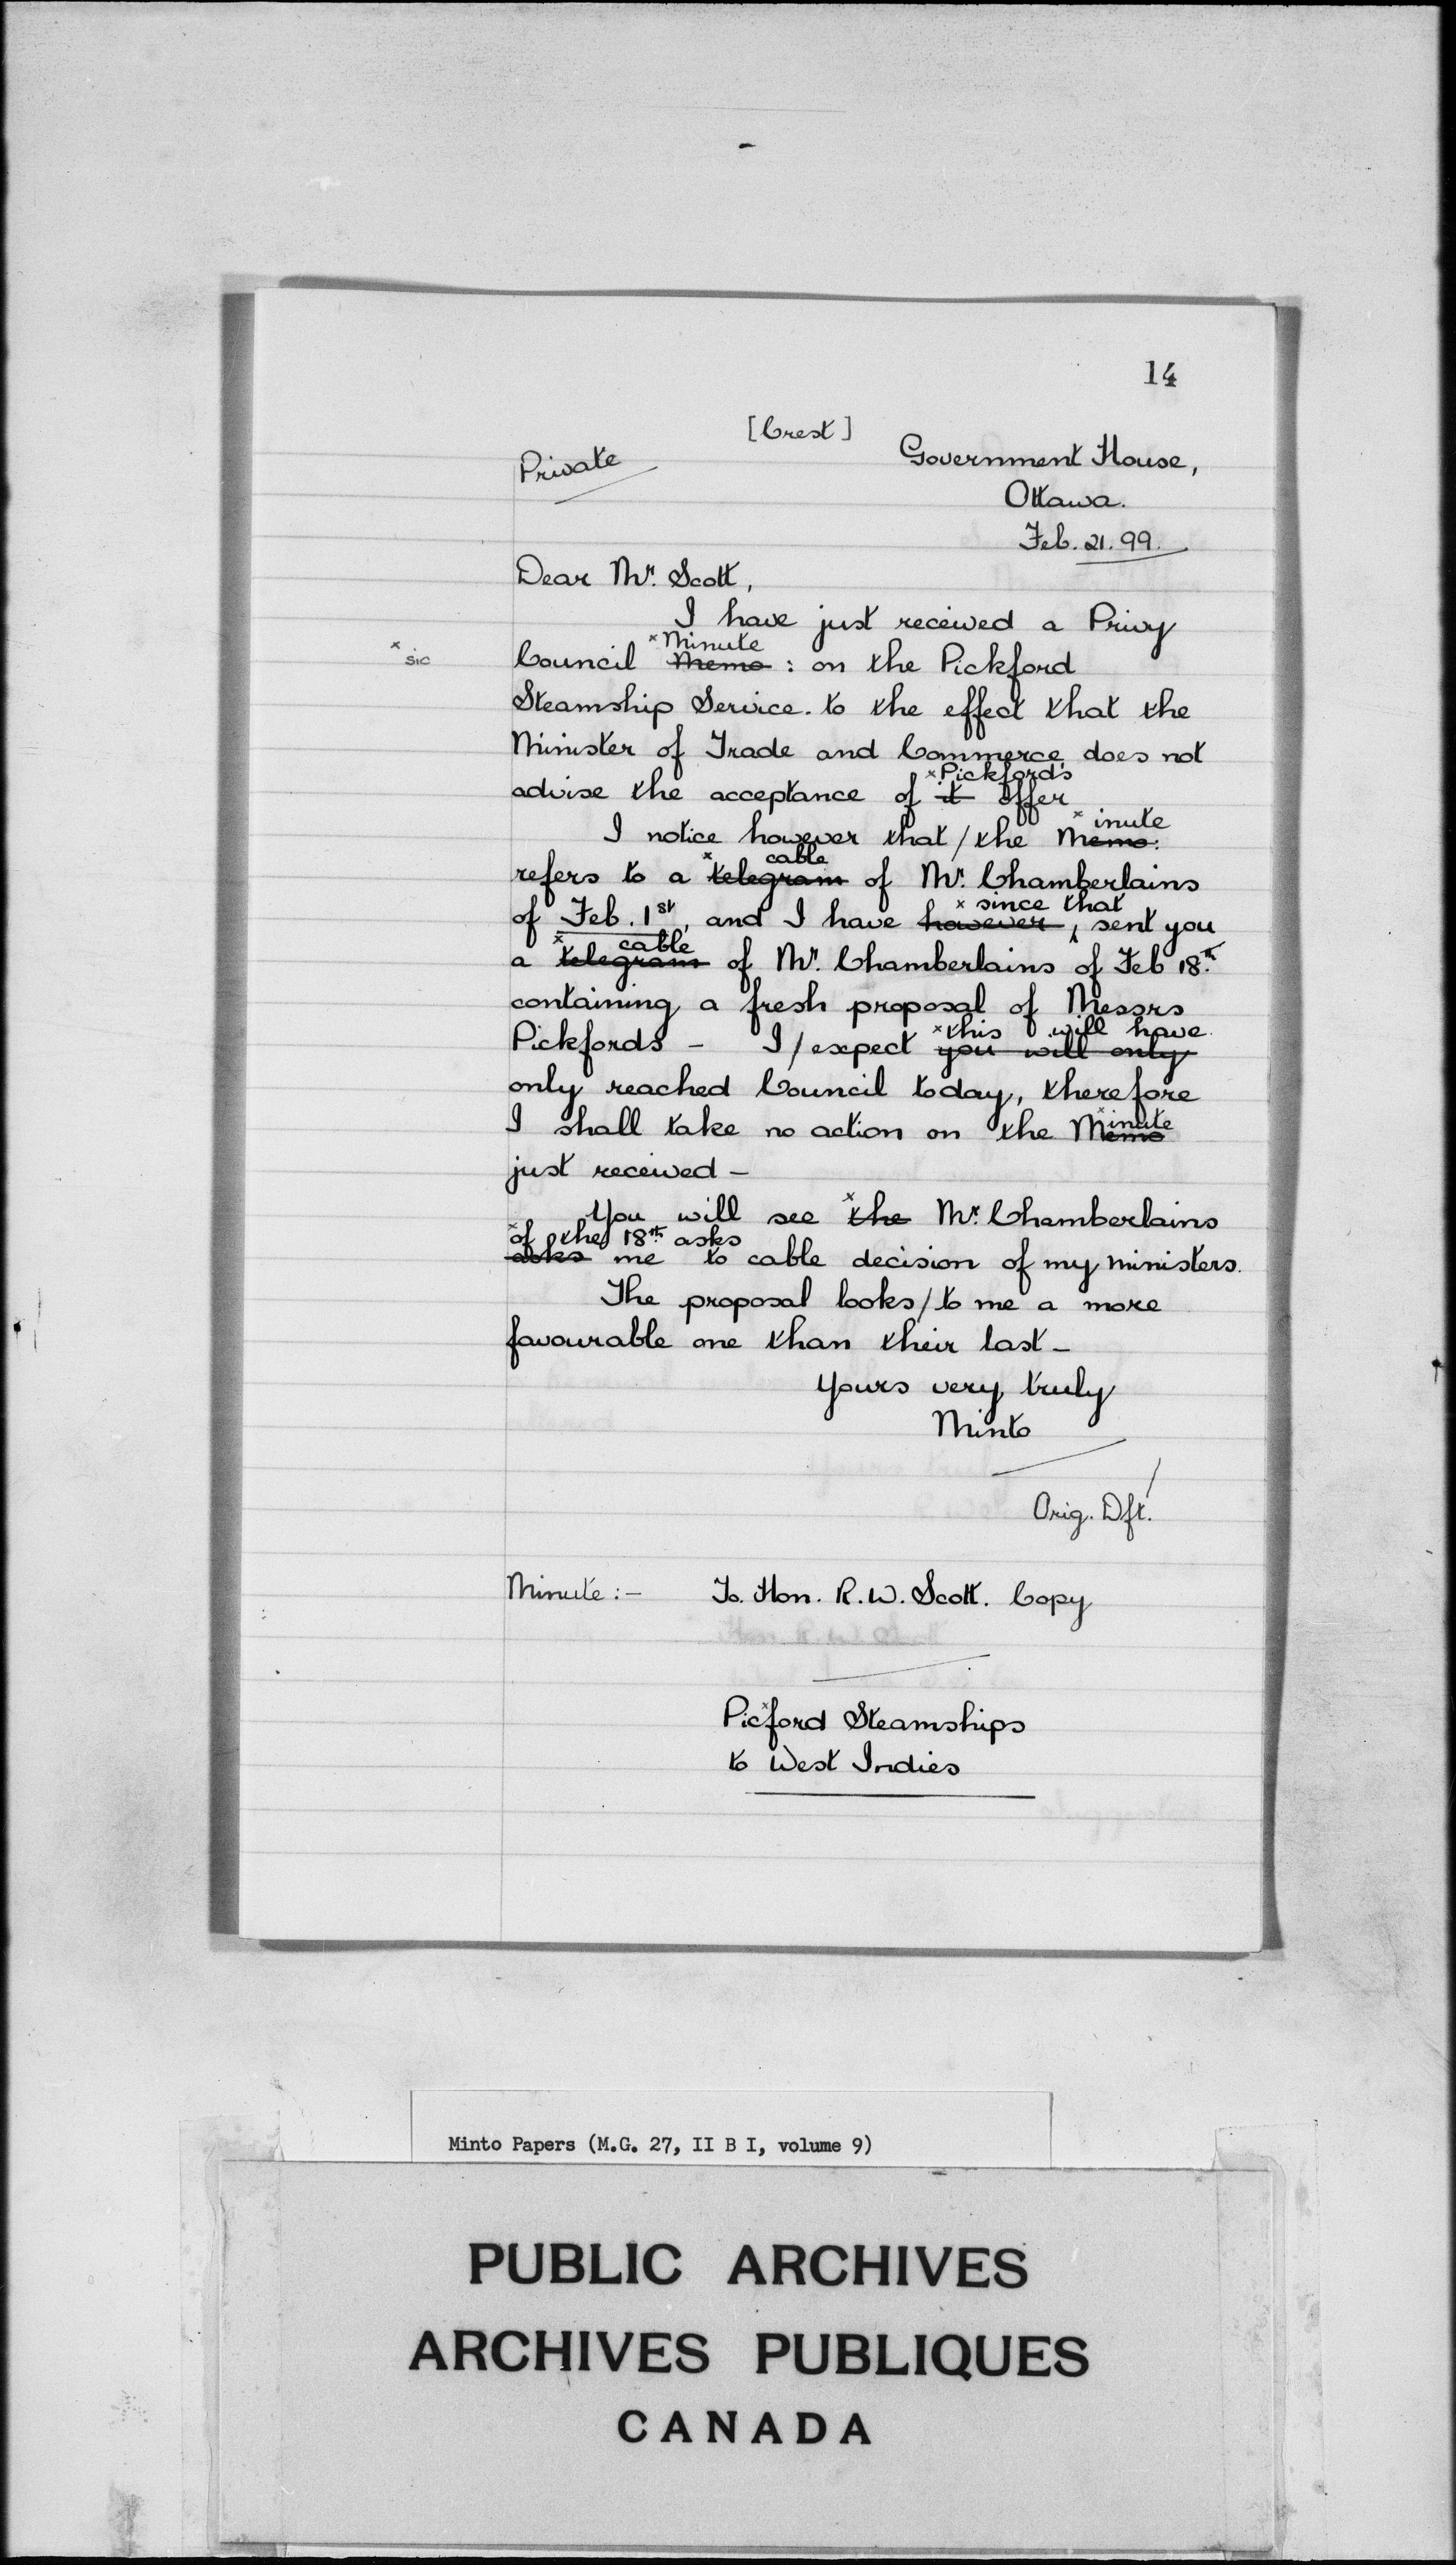 14
[Crest]
Private
Government House,
Ottawa.
Feb. 21. 99.
Dear Mr. Scott,
I have just received a Privy
x Minute
x sic
Council Memo : on the Pickford
Steamship Service. to the effect that the
Minister of Trade and Commerce does not
x Pickfords
advise the acceptance of it offer
x inute
I notice however that / the Memo:
x cable
refers to a telegram of Mr. Chamberlains
x since that
of Feb. 1st, and I have however, sent you
x cable
a telegram of Mr. Chamberlains of Feb 18th.
containing a fresh proposal of Messrs
x this will have
Pickfords - I / expect you will only
only reached Council today, therefore
x inute
I shall take no action on the Memo
just received -
x
You will see the Mr. Chamberlains
x of the 18th. asks
asks me to cable decision of my ministers.
The proposal looks / to me a more
favourable one than their last -
Yours very truly
Minto
Orig. Dft.
Minute :- To. Hon. R. W. Scott. Copy
x
Picford Steamships
to West Indies
Minto Papers (M.G. 27, II B I, volume 9)
PUBLIC ARCHIVES
ARCHIVES PUBLIQUES
CANADA